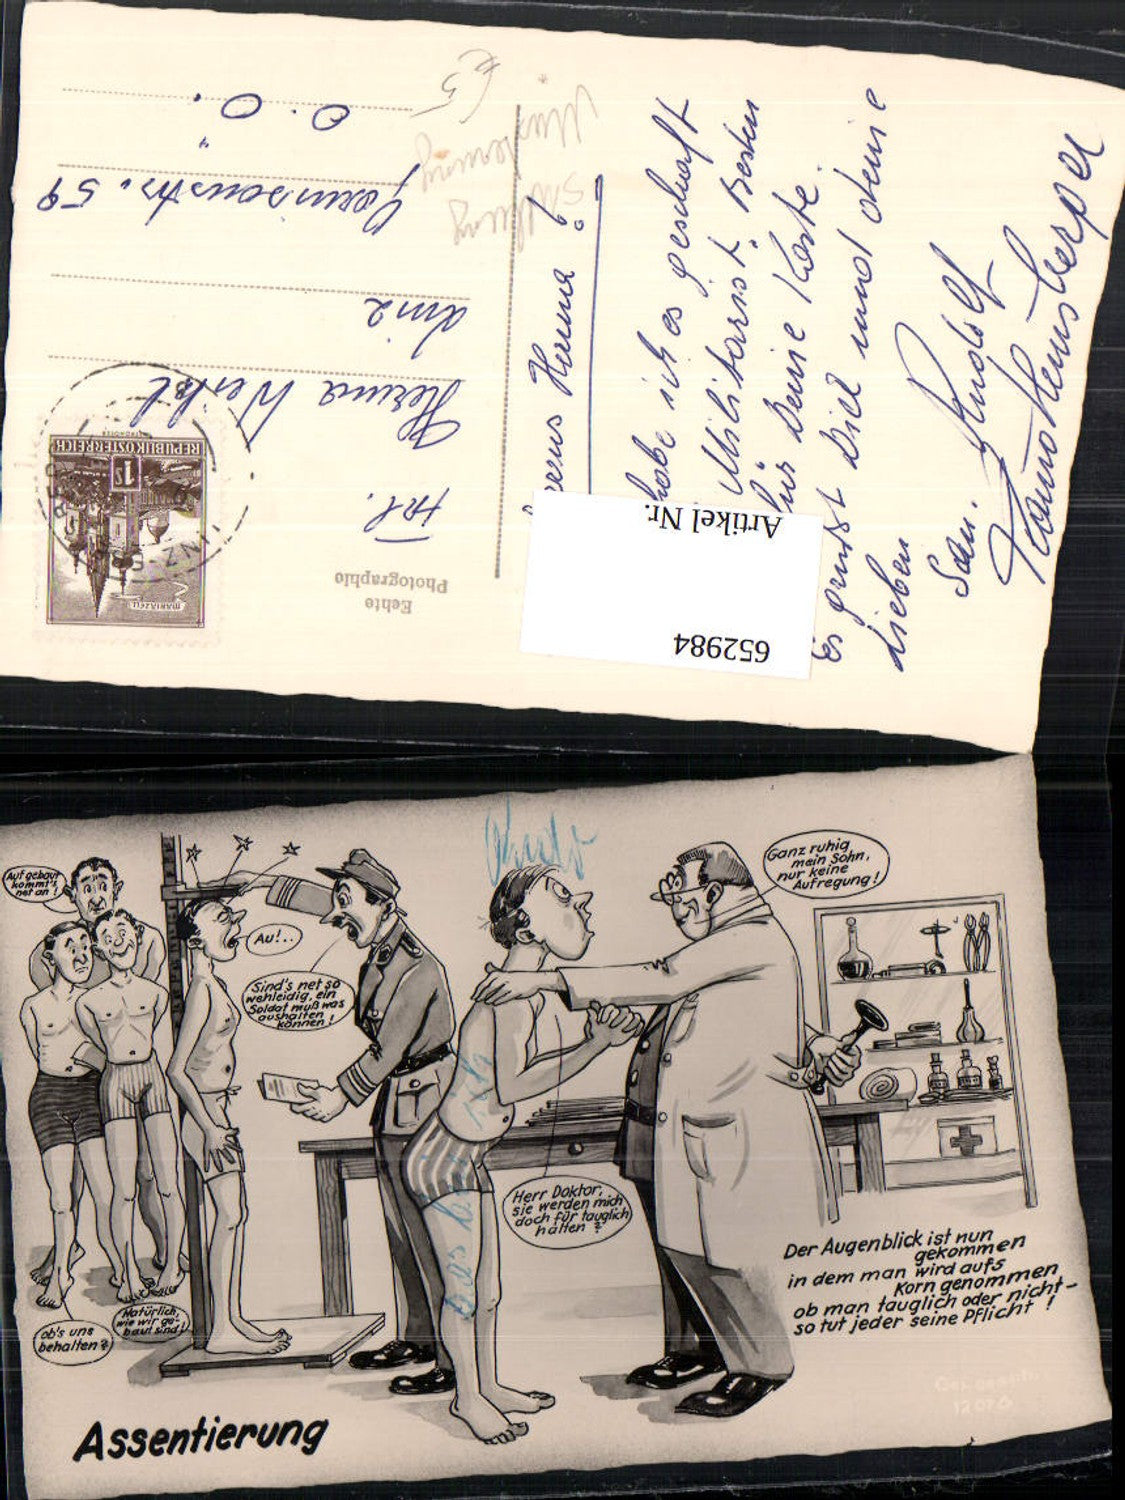 Echte
Photographie
MARIAZELL
1s
REPUBLIK ÖSTERREICH
LINZ
Frl.
Herma Weihl
Linz
59
O. Ö.
Herma!
habe ich es geschafft
Militarist. Besten
für Deine Karte.
Es grüsst Dich und deine
Lieben
Rudolf
Artikel Nr.
652984
€5
Rudi
das bin ich
Auf gebaut
kommt's
net an!
Au!..
Sind's net so
wehleidig, ein
Soldat muß was
aushalten
können!
Ganz ruhig
mein Sohn,
nur keine
Aufregung!
Herr Doktor,
sie werden mich
doch für tauglich
halten?
ob's uns
behalten?
Natürlich,
wie wir ge-
baut sind!
Der Augenblick ist nun
gekommen
in dem man wird aufs
Korn genommen
ob man tauglich oder nicht-
so tut jeder seine Pflicht!
Assentierung